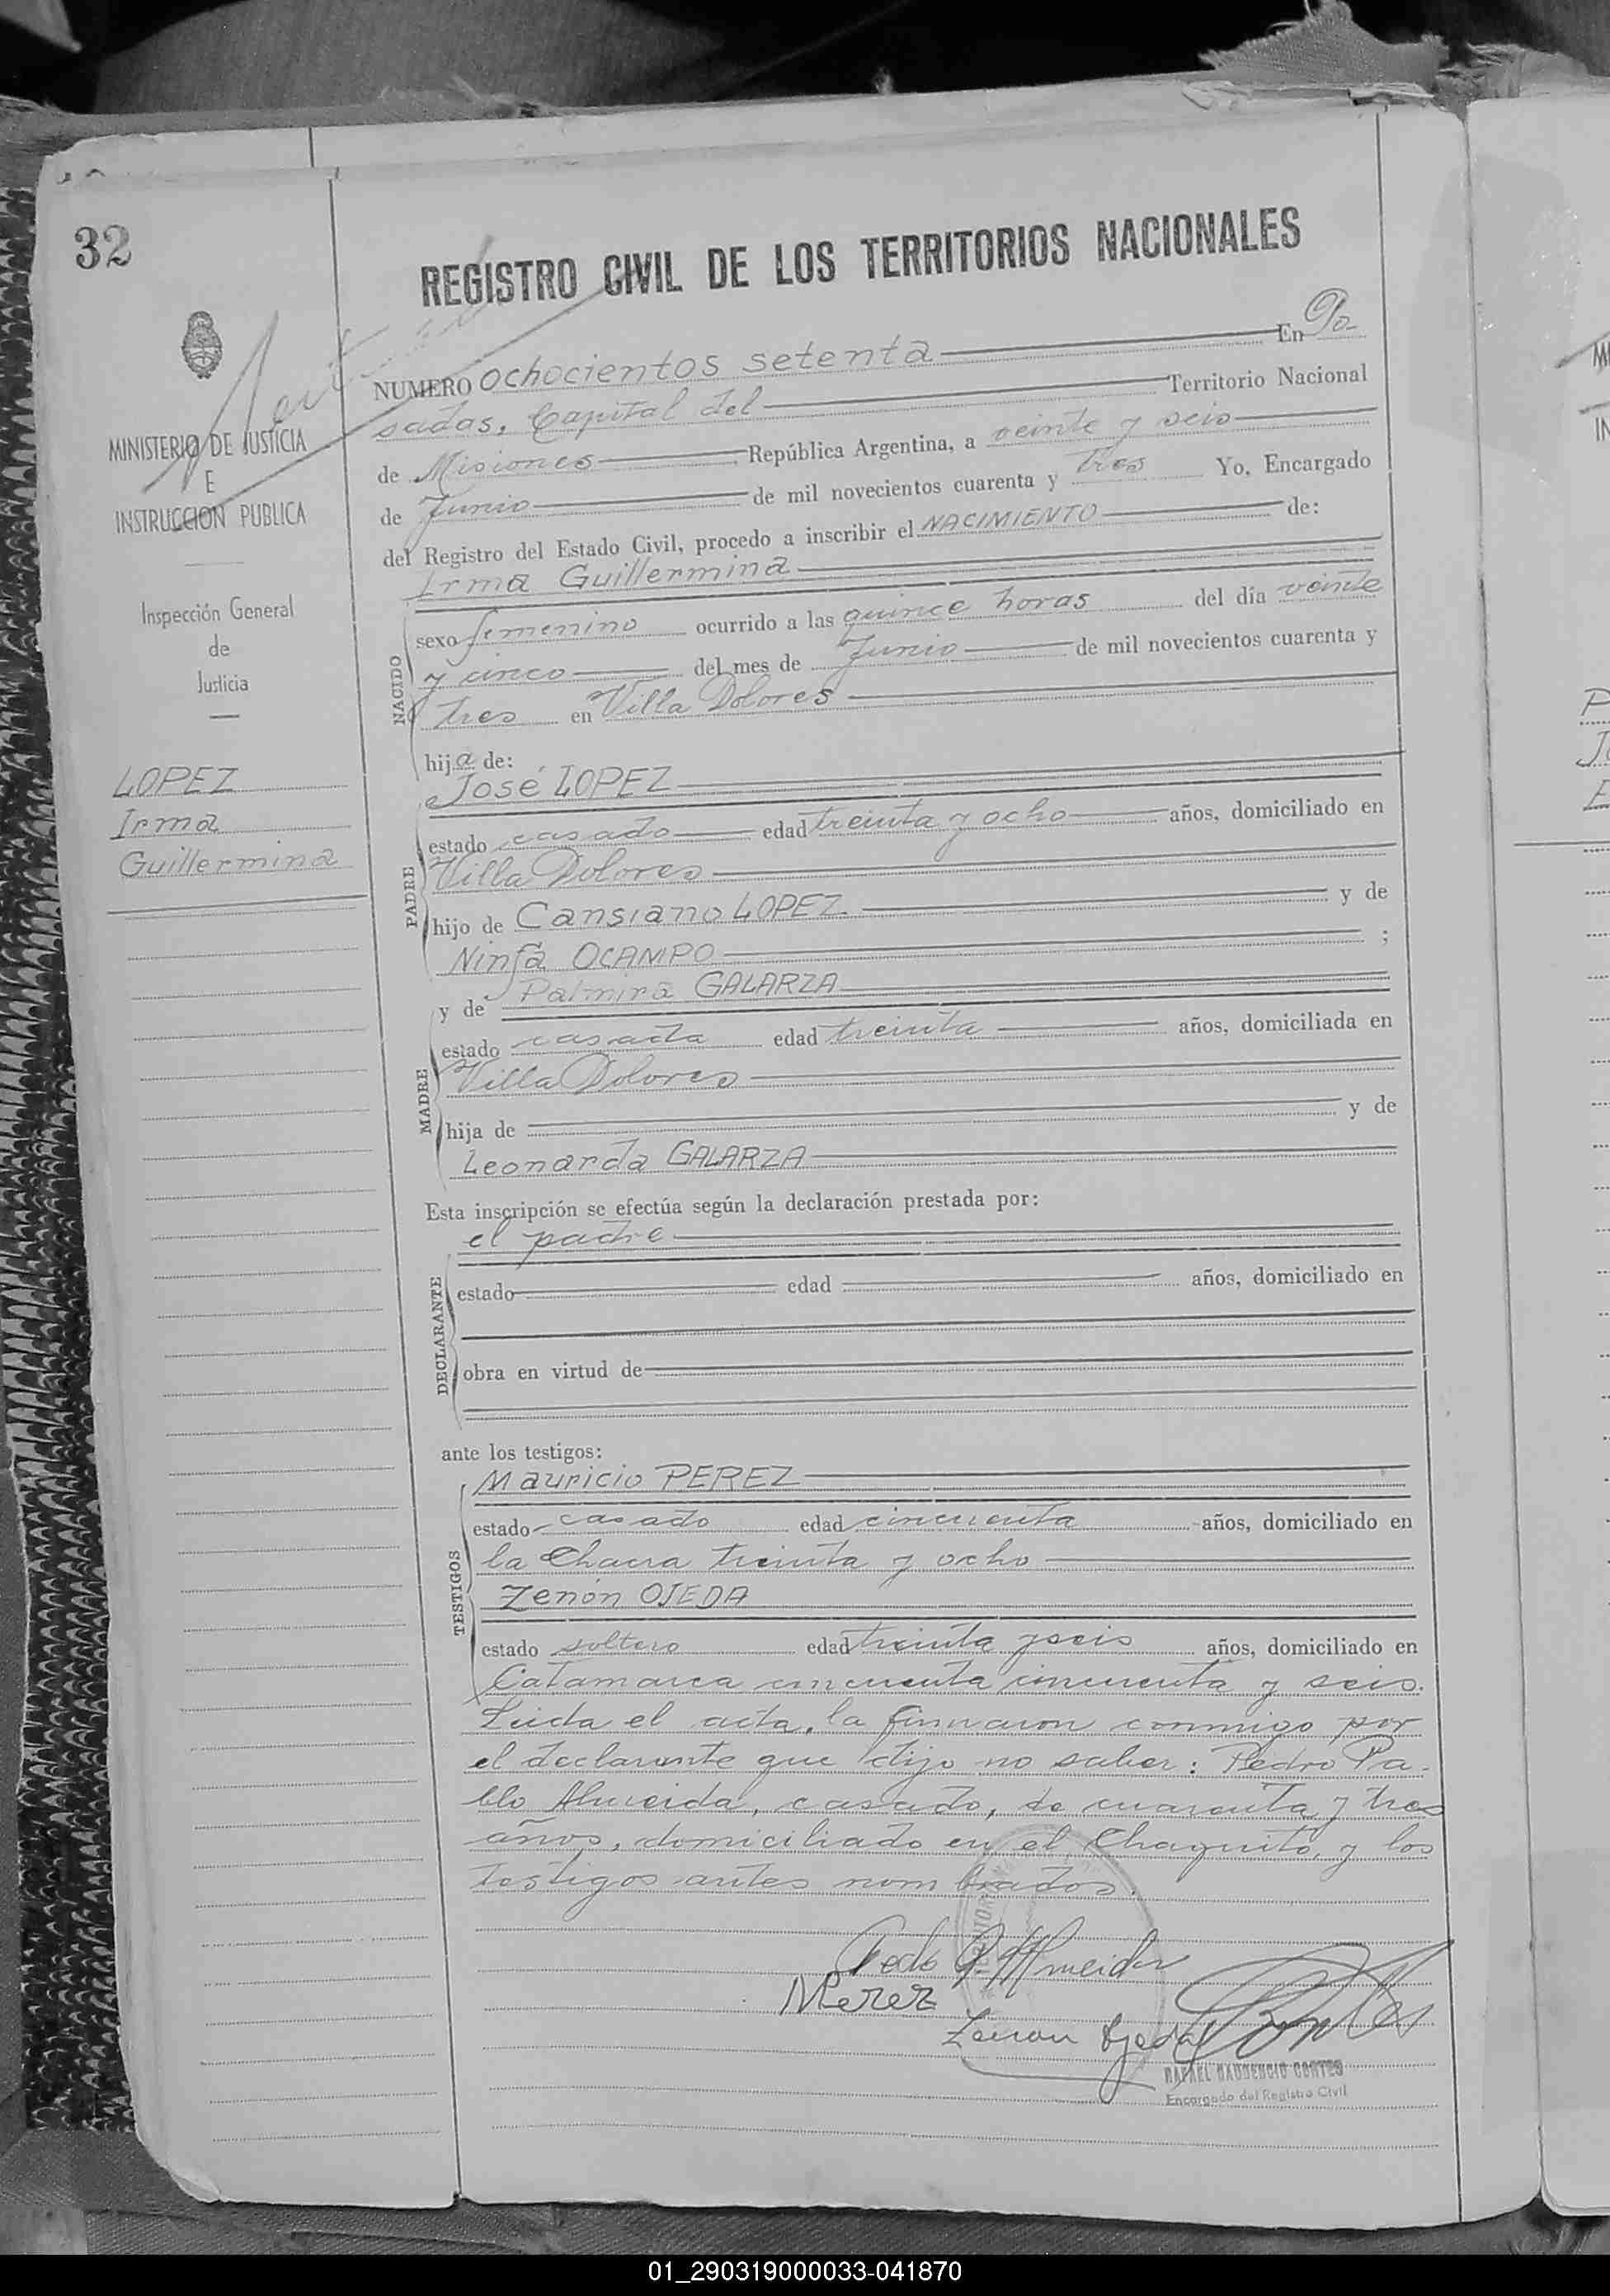 32
REGISTRO CIVIL DE LOS TERRITORIOS NACIONALES
MINISTERIO DE JUSTICIA
E
INSTRUCCION PUBLICA
Inspección General
de
Justicia
LOPEZ
Irma
Guillermina
NUMERO ochocientos setenta En Po-
sadas, Capital del Territorio Nacional
de Misiones República Argentina, a veinte y seis
de Junio de mil novecientos cuarenta y tres Yo, Encargado
del Registro del Estado Civil, procedo a inscribir el NACIMIENTO de:
Irma Guillermina
NACIDO
sexo femenino ocurrido a las quince horas del día veinte
y cinco del mes de Junio de mil novecientos cuarenta y
tres en Villa Dolores
hija de:
José LOPEZ
PADRE
estado casado edad treinta y ocho años, domiciliado en
Villa Dolores
hijo de Cansiano LOPEZ. y de
Ninfa OCAMPO ;
y de Palmira GALARZA
MADRE
estado casada edad treinta años, domiciliada en
Villa Dolores
hija de y de
Leonarda GALARZA
Esta inscripción se efectúa según la declaración prestada por:
el padre
DECLARANTE
estado edad años, domiciliado en
obra en virtud de
ante los testigos:
Mauricio PEREZ
TESTIGOS
estado casado edad cincuenta años, domiciliado en
la Chacra treinta y ocho
Zenón OJEDA
estado soltero edad treinta y seis años, domiciliado en
Catamarca cincuenta cincuenta y seis.
Leida el acta, la firmaron conmigo por
el declarante que dijo no saber: Pedro Pa-
blo Almeida, casado, de cuarenta y tres
años, domiciliado en el Chaquito, y los
testigos antes nombrados.
Pedo P. Almeida
MPerez
Zenon Ojeda
RAFAEL GAUDENCIO CORTES
Encargado del Registro Civil
01_290319000033-041870